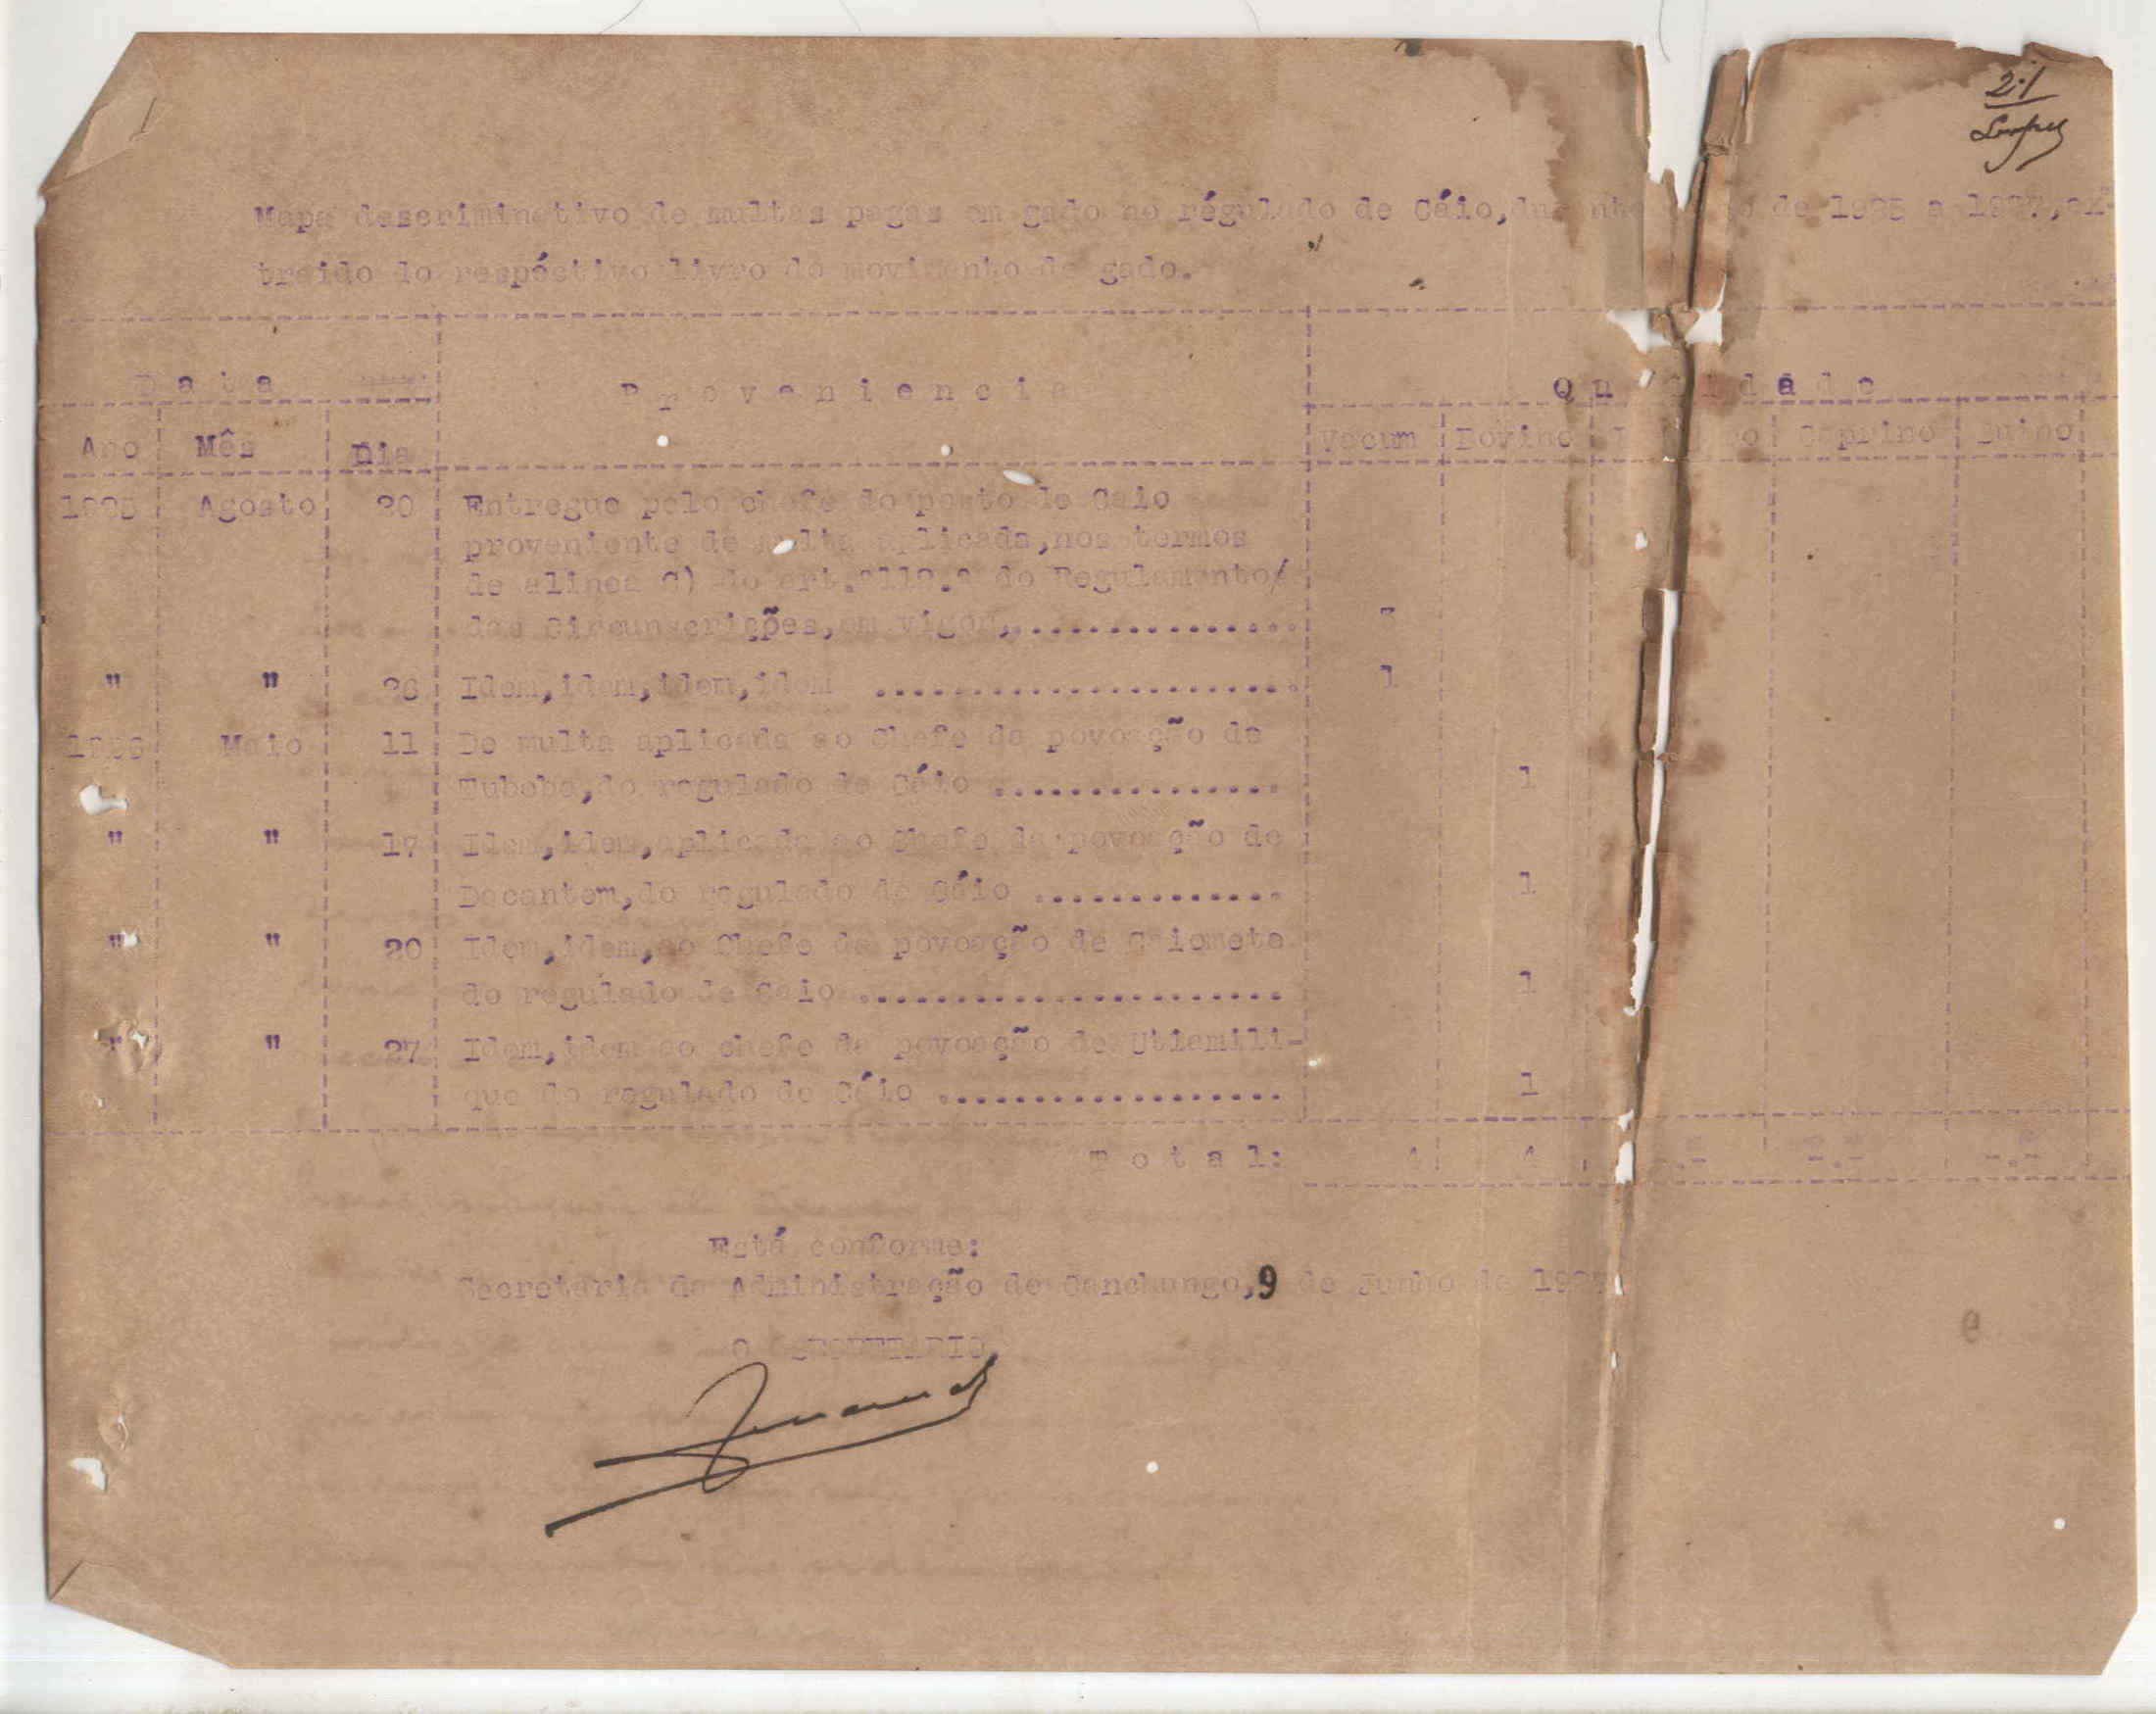 21
Mapa descriminativo de multas pagas em gado no régulado de Cáio, de 1925 a 1927,ex-
traido do respéctivo livro do movimento de gado.
Data Proveniencia Qu dade
Ano Mês Dia Vacum Bovino Caprino Suino
1925 Agosto 20 Entregue pelo chefe do posto de Caio
proveniente de multa aplicada,nos termos
de alinea C) do art. do Regulamento/
das Circunscrições,em vigor,...............
" " 26 Idem,idem,idem,idem ...................... 1
1926 Maio 11 De multa aplicada ao Chefe da povoação de
Tubebe,do regulado de Cáio ............... 1
" " 17 Idem,idem,aplicada ao Chefe da povoação de
Docantem,do regulado de Cáio ............. 1
" " 20 Idem,idem,ao Chefe da povoação de Caiomete
do regulado de Caio ...................... 1
" " 27 Idem,idem ao chefe da povoação de Utiamili-
que do regulado de Cáio .................. 1
Total: 4 4 -.- -.- -.-
Está conforme:
Secretaria da Administração de Canchungo,9 de Junho de
O SECRETARIO,